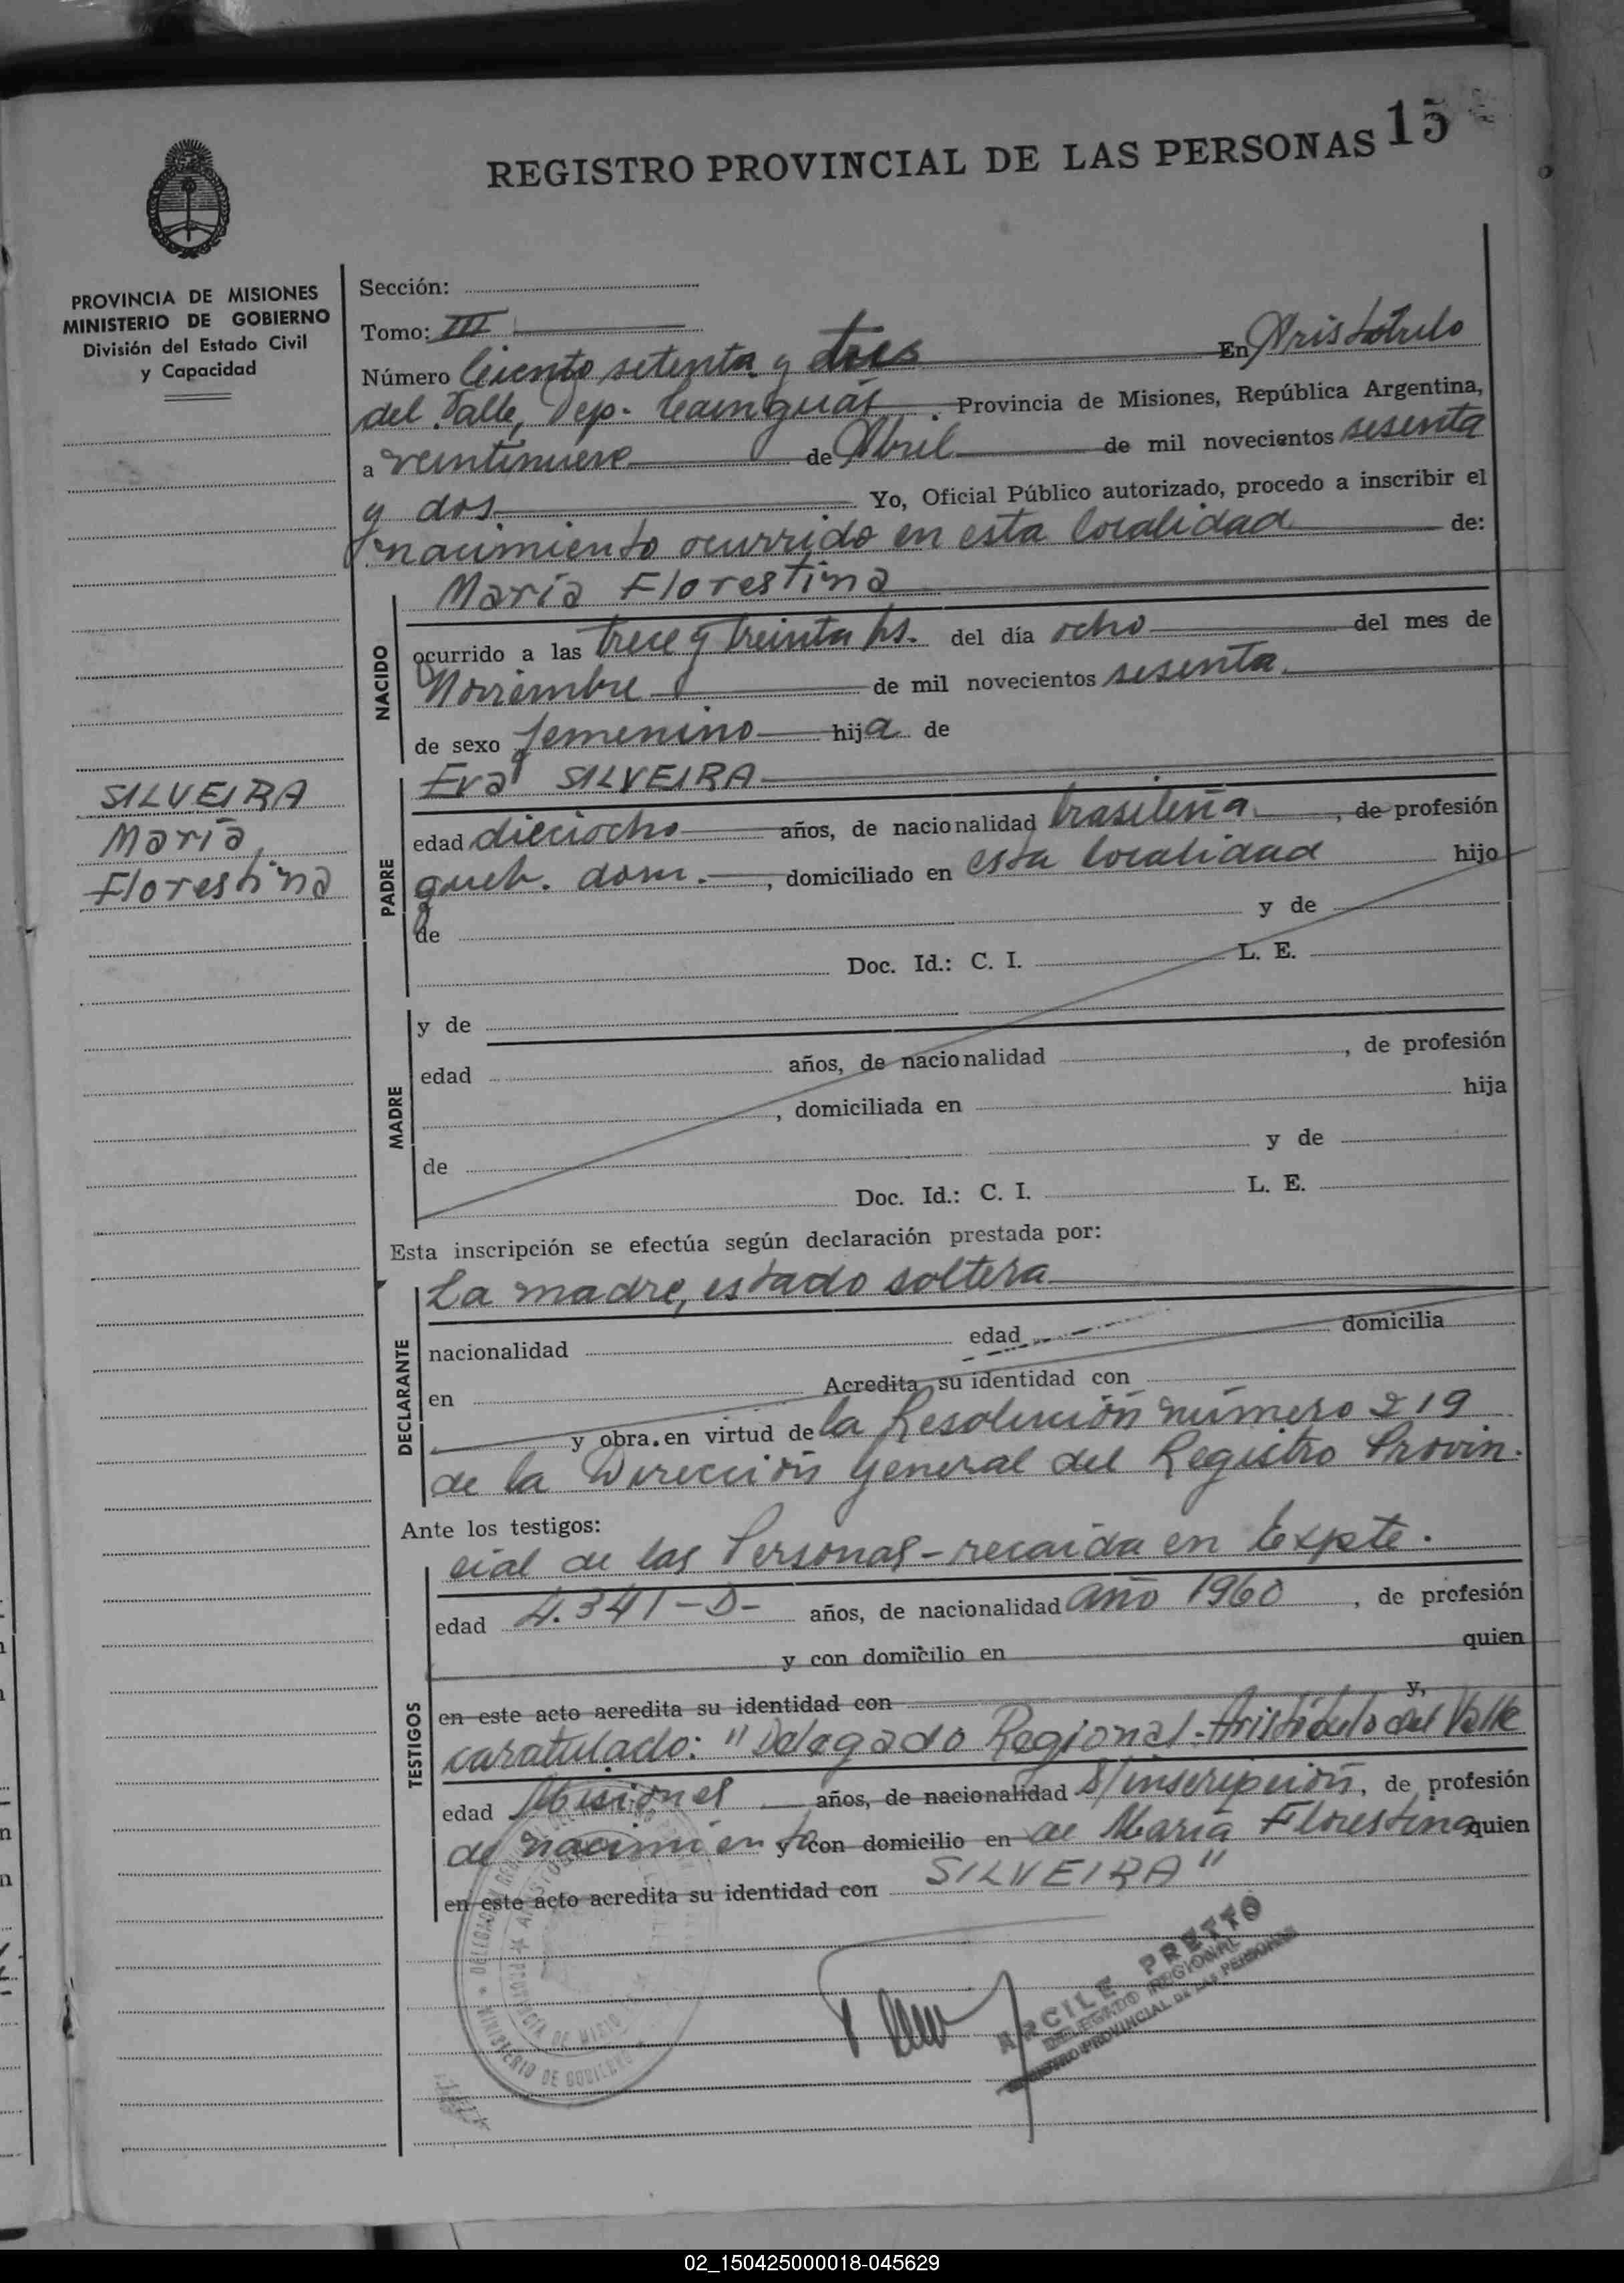 REGISTRO PROVINCIAL DE LAS PERSONAS 15
PROVINCIA DE MISIONES
MINISTERIO DE GOBIERNO
División del Estado Civil
y Capacidad
SILVEIRA
María
Florestina
Sección:
Tomo: III
Número Ciento setenta y tres En Aristóbulo
del Valle, Dep. Cainguás. Provincia de Misiones, República Argentina,
a veintinueve de Abril de mil novecientos sesenta
y dos Yo, Oficial Público autorizado, procedo a inscribir el
nacimiento ocurrido en esta localidad de:
NACIDO
María Florestina
ocurrido a las trece y treinta hs. del día ocho del mes de
Noviembre de mil novecientos sesenta
de sexo femenino hija de
PADRE
Eva SILVEIRA
edad dieciocho años, de nacionalidad brasileña, de profesión
queh. dom., domiciliado en esta localidad hijo
de y de
Doc. Id.: C. I. L. E.
MADRE
y de
edad años, de nacionalidad , de profesión
, domiciliada en hija
de y de
Doc. Id.: C. I. L. E.
Esta inscripción se efectúa según declaración prestada por:
DECLARANTE
La madre, estado soltera
nacionalidad edad domicilia
en Acredita su identidad con
y obra en virtud de la Resolución número 219
de la Dirección General del Registro Provin.
Ante los testigos:
TESTIGOS
cial de las Personas - recaída en Expte.
edad 4.341-D- años, de nacionalidad año 1960, de profesión
y con domicilio en quien
en este acto acredita su identidad con y,
caratulado: "Delegado Regional-Aristóbulo del Valle
edad Misiones años, de nacionalidad S/inscripción, de profesión
de nacimiento y con domicilio en de María Florestina quien
en este acto acredita su identidad con SILVEIRA"
ARCILE PRETTO
DELEGADO REGIONAL
REGISTRO PROVINCIAL DE LAS PERSONAS
MINISTERIO DE GOBIERNO
PROVINCIA DE MISIO
02_150425000018-045629